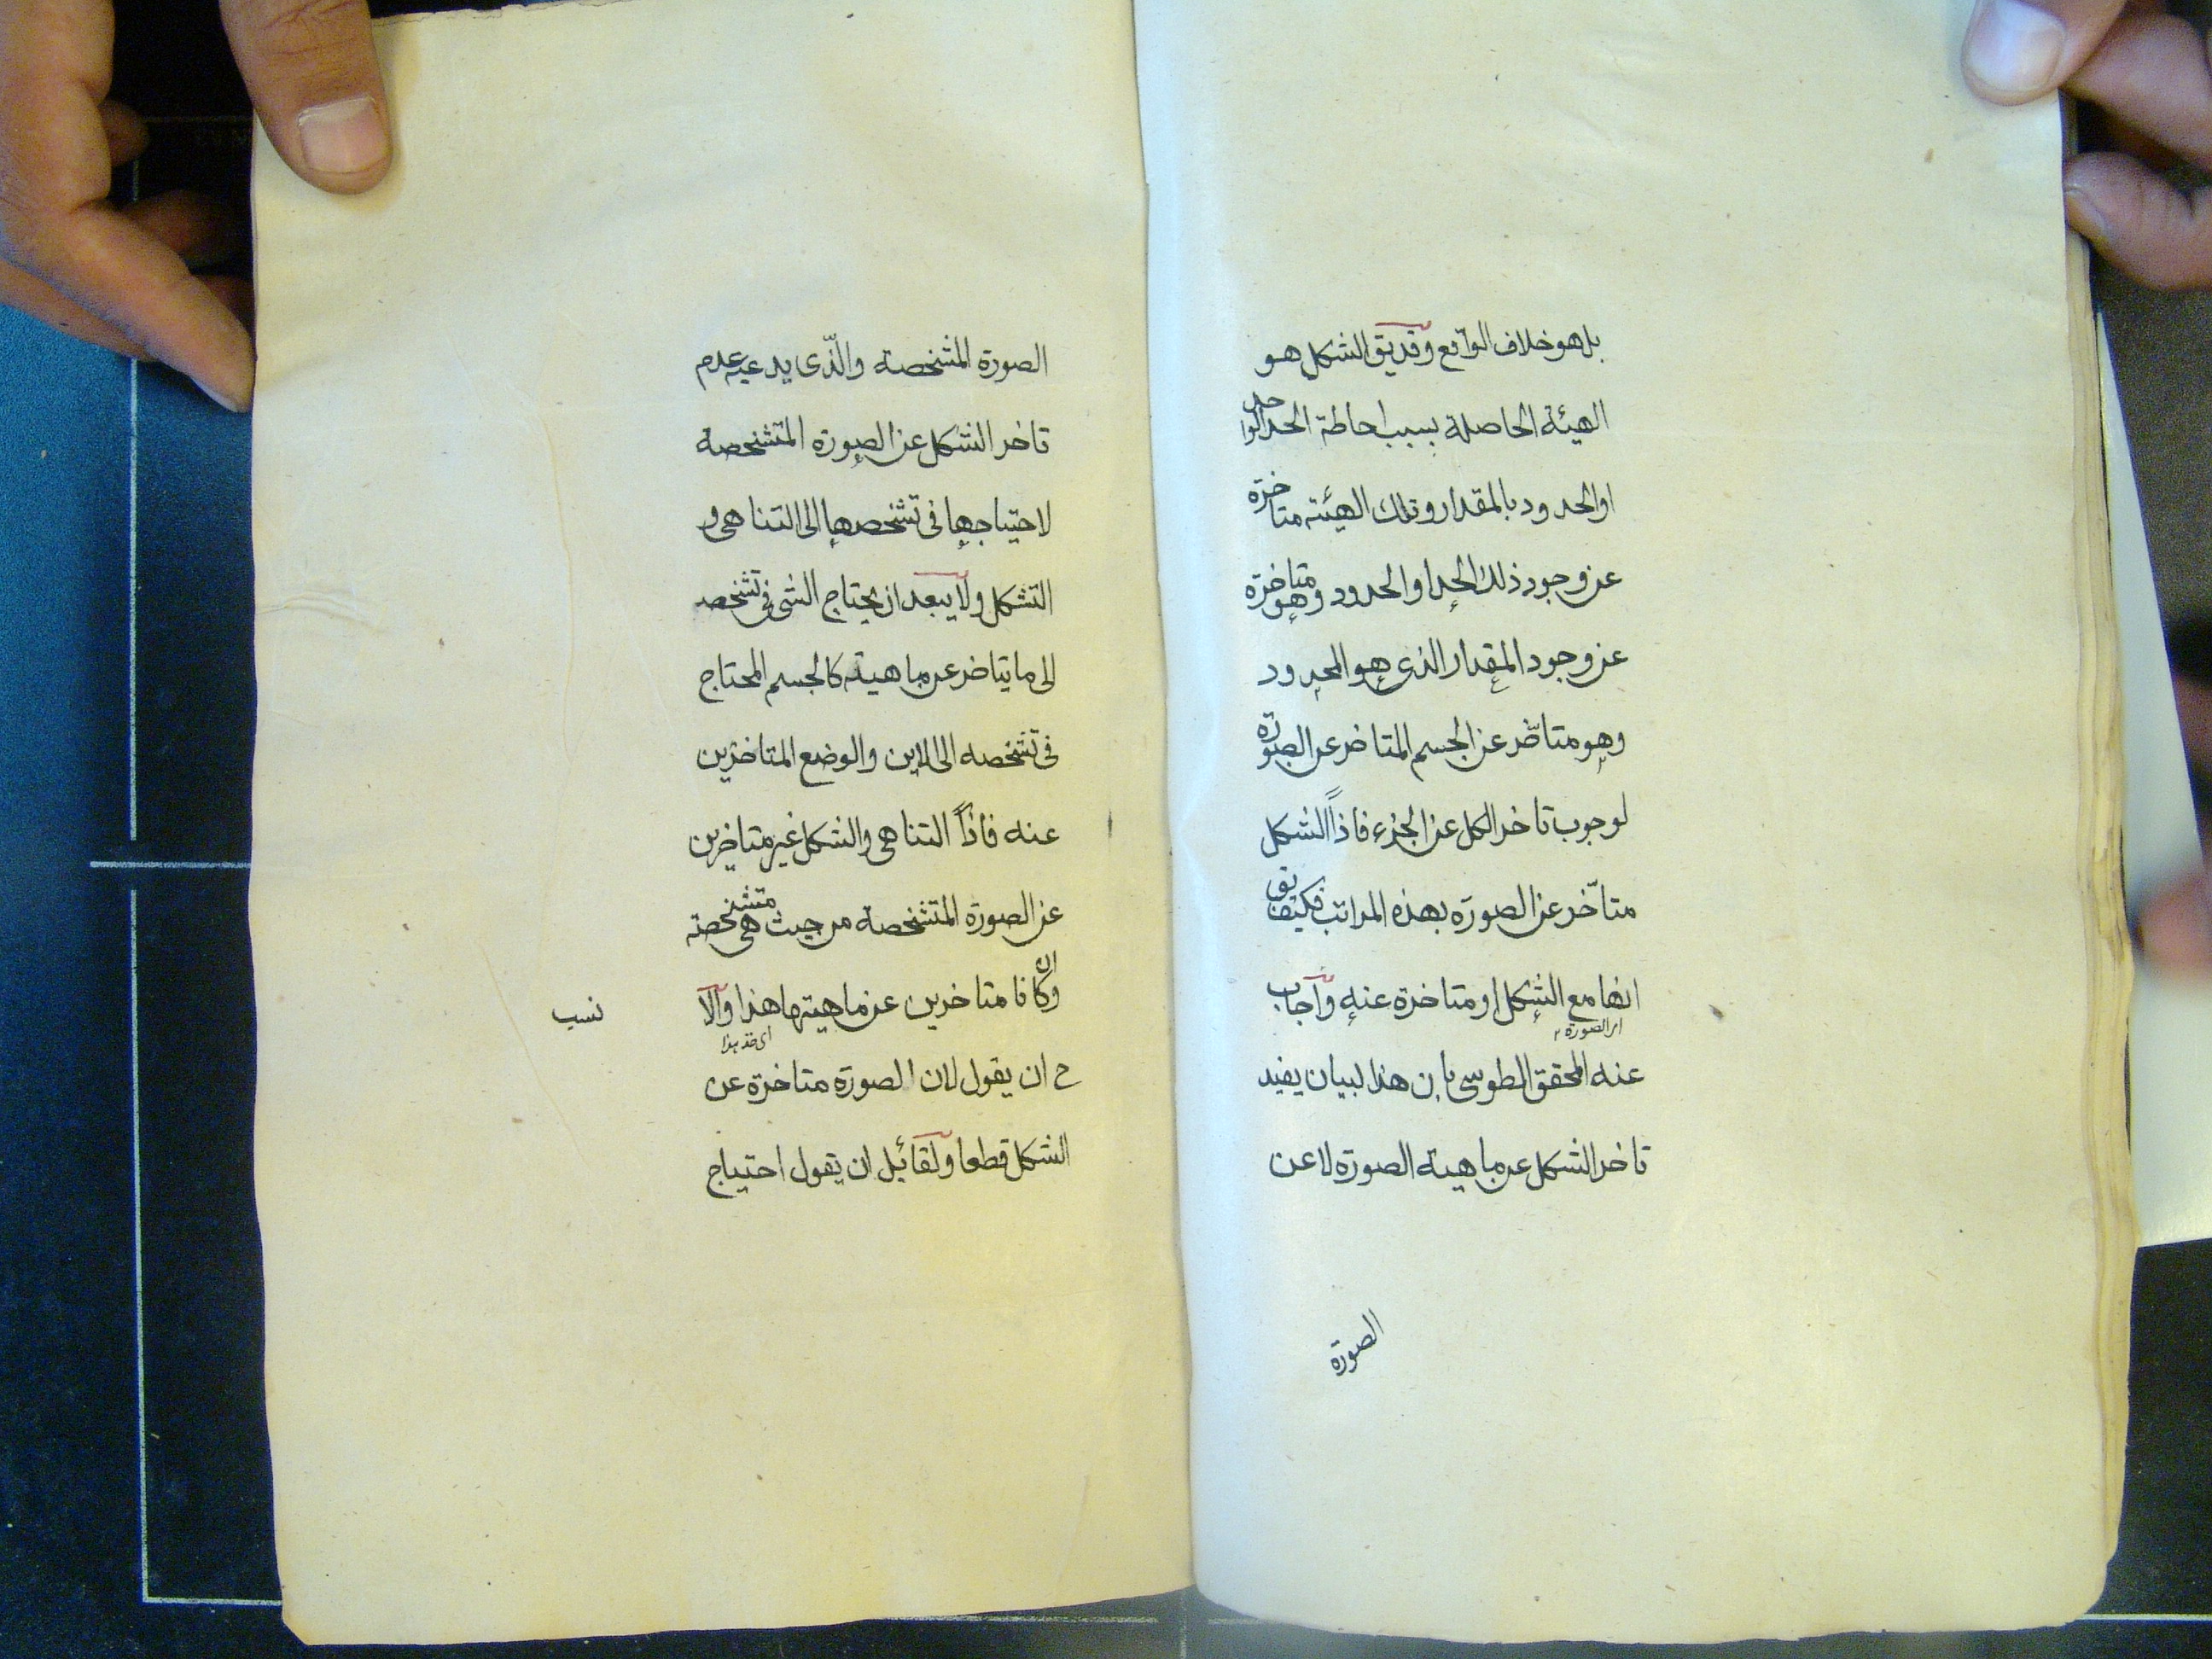 بل هو خلاف الواقع وقد يق الشكل هو
الهيئة الحاصلة بسبب احاطة الحد الواحد
او الحدود بالمقدار وتلك الهيئته متاخرة
عن وجود ذلك الحد او الحدود وهو متاخرة
عن وجود المقدار الذى هو المحدود
وهو متاخّر عن الجسم المتاخر عن الصورة
لوجوب تاخر الكل عن الجزء فاذاً الشكل
متاخّر عن الصورة بهذه المراتب فكيف يق
انها مع الشكل او متاخرة عنه واجاب
اى الصورة
عنه المحقق الطوسى بان هذا لبيان يفيد
تاخر الشكل عن ماهية الصورة لا عن
الصورة
الصورة المشخصة والّذى يدعيه عدم
تاخر الشكل عن الصورة المتشخصة
لاحتياجها فى تشخصها الى التناهى و
التشكل ولا يبعد ان يحتاج الشى فى تشخصه
الى ما يتاخر عن ماهيته كالجسم المحتاج
فى تشخصه الى الاين والوضع المتاخرين
عنه فاذاً التناهى والشكل غير متاخرين
عن الصورة المتشخصة من حيث هى متشخصة
وان كانا متاخرين عن ماهيتها هذا والا
نسب
اى خذ هذا
ح ان يقول لان الصورة متاخرة عن
الشكل قطعا ولقائل ان يقول احتياج